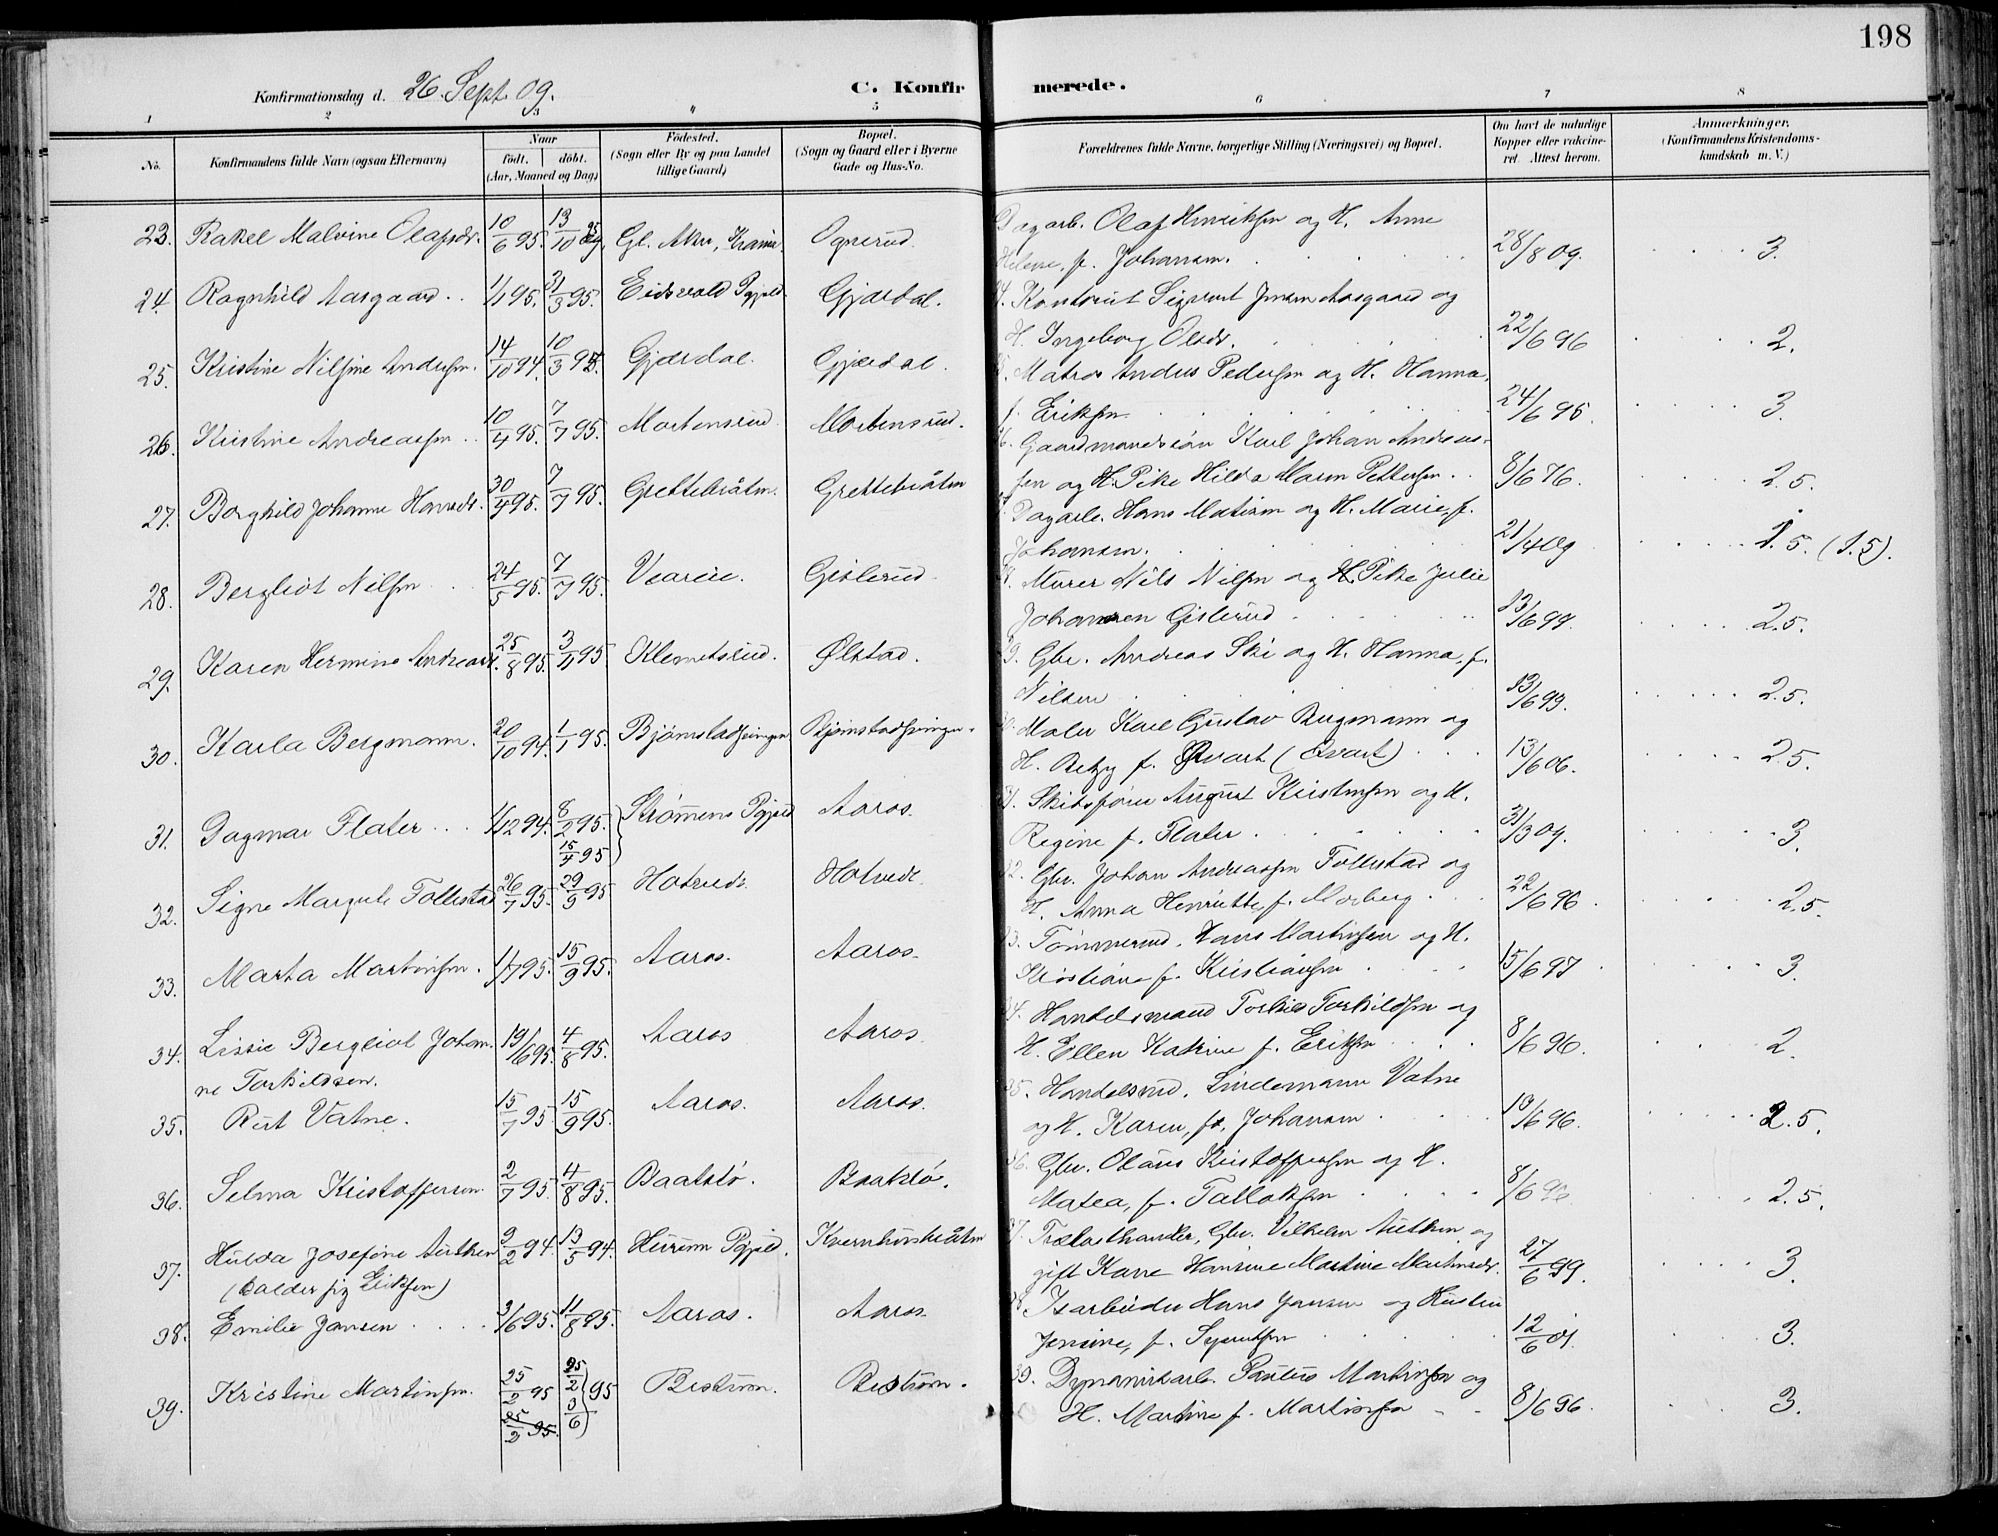 198
Konfirmationsdag d. 26. Sept. 09.
C. Konfir merede.
1 2 3 4 5 6 7 8
No.
Konfirmandens fulde Navn (ogsaa Efternavn)
Naar
födt. döbt.
(Aar, Maaned og Dag)
Födested.
(Sogn eller By og paa Landet
tillige Gaard)
Bopæl.
(Sogn og Gaard eller i Byerne
Gade og Hus-No.
Forældrenes fulde Navne, borgerlige Stilling (Næringsvei) og Bopæl.
Om havt de naturlige
Kopper eller vaccine-
ret. Attest herom.
Anmærkninger.
(Konfirmandens Kristendoms-
kundskab m. V.)
23. Rakel Malvine Olafsdr. 10/6 95. 13/10 95 Gl. Aker, Kra Ognerud. Dagarb. Olaf Henriksen og H. Anne
Helene, f. Johansen. 28/8 09. 3.
24. Ragnhild Aasgaard 1/1 95. 31/3 95. Eidsvold Pgjeld. Gjerdal. Kontorist Sigvart Jensen Aasgaard og
H. Ingeborg Olsdr. 22/6 96 2.
25. Kristine Nilsine Andersen. 14/10 94. 10/3 95. Gjerdal. Gjerdal. Matros Anders Pedersen og H. Hanna,
f. Eriksen 24/6 95. 3.
26. Kristine Andreassen 10/4 95. 7/7 95. Mortensrud Mortensrud. 26. Gaardmandssøn Karl Johan Andreas-
sen og H. Pike Hilda Maren Pettersen. 8/6 76. 2.5.
27. Borghild Johanne Hansdr. 30/4 95. 7/7 95. Grettebråten. Grettebråten Dagarb. Hans Matisen og H. Marie, f.
Johansen. 21/4 09 1.5. (1.5).
28. Bergliot Nilsen 24/5 95. 7/7 95. Veareie. Gislerud. Murer Nils Nilsen og H. Pike Julie
Johansen Gislerud 13/6 99. 2.5.
29. Karen Hermine Andreasdr. 25/8 95. 3/11 95 Klemetsrud. Ølstad. 29. Gbr. Andreas Ski og H. Hanna, f.
Nilsen 13/6 99. 2.5.
30. Karla Bergmann. 20/10 94. 1/1 95. Bjørnstadsvingen Bjørnstadsvingen. Maler Karl Gustav Bergmann og
H. Betzy f. Qvart (Qvart) 13/6 06. 2.5.
31. Dagmar Flater 1/12 94. 8/2 95. 15/4 95 Strømmens Pgjeld Aaros. Skibsfører August Kristensen og H.
Regine f. Flater 31/3 09. 3.
32. Signe Margrete Follestad 26/7 95. 29/9 95 Hotvedt. Hotvedt. 32. Gbr. Johan Andreassen Follestad og
H. Anna Henriette, f. Morberg. 22/6 96. 2.5.
33. Marta Martinsen. 11/7 95. 15/9 95. Aaros. Aaros. 33. Tømmermd. Hans Martinsen og H.
Kristiane f. Kristiansen 15/6 97. 3.
34. Lissie Bergliot Johan- 19/6 95. 4/8 95. Aaros Aaros. 34. Handelsmand Torkild Torkildsen og
ne Torkildsen. H. Ellen Katrine f. Eriksen 8/6 96. 2.
35. Rut Vatne. 15/7 95. 15/9 95. Aaros. Aaros. 35. Handelsmd. Lindemann Vatne
og H. Karen, f. Johansen 10/6 96. 2.5.
36. Selma Kristoffersen 2/7 95. 4/8 95. Baatstø. Baatstø. 36. Gbr. Olaus Kristoffersen og H.
Matea, f. Tallaksen 8/6 96. 2.5.
37. Hulda Josefine Authen 9/2 94. 13/5 94. Hurum Pgjeld. Kvernhusbråten 37. Trælasthandler, Gbr. Vilhelm Authen og
(kalder sig Eriksen) gift Kone Hansine Martine Martinsdr. 27/6 99. 3.
38. Emilie Jansen 3/6 95. 11/8 95. Aaros. Aaros. Isarbeider Hans Jansen og Hustru
Jensine, f. Syvertsen 12/6 01. 3.
39. Kristine Martinsen. 25/2 95 25/2 95. 25/2 3/6 95 Bestum. Bestum. 39. Dynamitarb. Paulus Martinsen og
H. Martine f. Martinsen 8/6 96. 3.